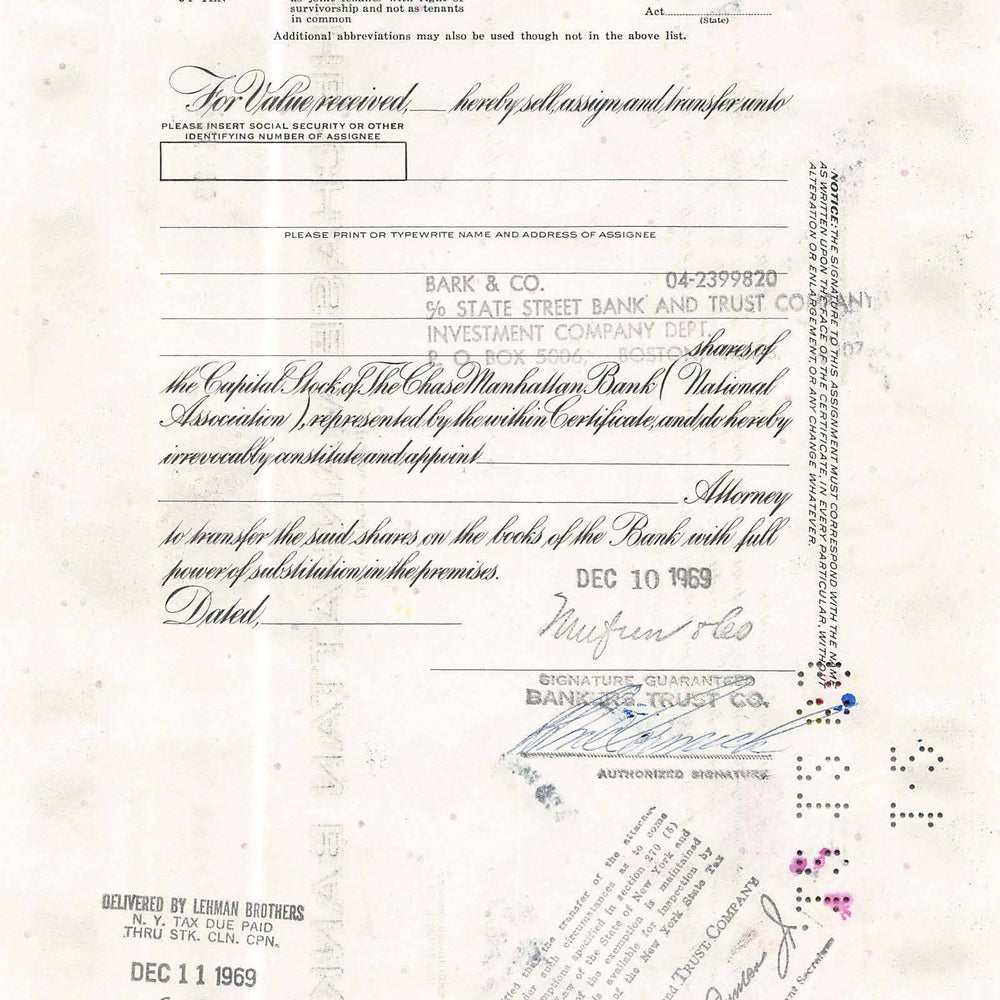 survivorship and not as tenants
in common
Act
(State)
Additional abbreviations may also be used though not in the above list.
For Value received, hereby sell, assign and transfer unto
PLEASE INSERT SOCIAL SECURITY OR OTHER
IDENTIFYING NUMBER OF ASSIGNEE
PLEASE PRINT OR TYPEWRITE NAME AND ADDRESS OF ASSIGNEE
BARK & CO. 04-2399820
c/o STATE STREET BANK AND TRUST COMPANY
INVESTMENT COMPANY DEPT.
P. O. BOX 5006, BOSTON
shares of
the Capital Stock of The Chase Manhattan Bank (National
Association), represented by the within Certificate, and do hereby
irrevocably constitute and appoint
Attorney
to transfer the said shares on the books of the Bank with full
power of substitution in the premises.
DEC 10 1969
Dated,
SIGNATURE GUARANTEED
BANKERS TRUST CO.
AUTHORIZED SIGNATURE
NOTICE: THE SIGNATURE TO THIS ASSIGNMENT MUST CORRESPOND WITH THE NAME
AS WRITTEN UPON THE FACE OF THE CERTIFICATE, IN EVERY PARTICULAR, WITHOUT
ALTERATION OR ENLARGEMENT, OR ANY CHANGE WHATEVER.
1-5
the transfer of the attached
such circumstances as to come
specified in section 270 (5)
of the State of New York and
the exemption is maintained
available for inspection by
of the New York State Tax
TRUST COMPANY
DELIVERED BY LEHMAN BROTHERS
N. Y. TAX DUE PAID
THRU STK. CLN. CPN.
DEC 11 1969